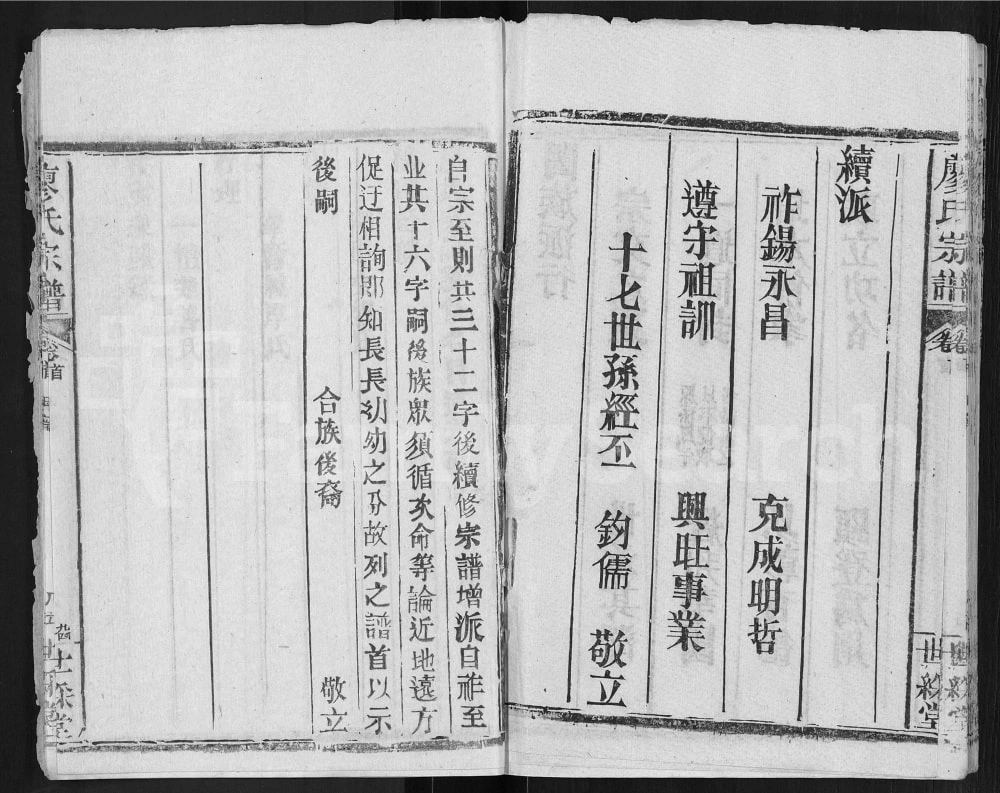 廖氏宗譜
世綵堂
續派
祚錫永昌 克成明哲
遵守祖訓 興旺事業
十七世孫經丕 鈞儒 敬立
自宗至則共三十二字後續修宗譜增派自祚至
业共十六字嗣後族眾須循次命等論近地遠方
促迂相詢即知長長幼幼之分故列之譜首以示
後嗣
合族後裔 敬立
廖氏宗譜
卷首
世綵堂